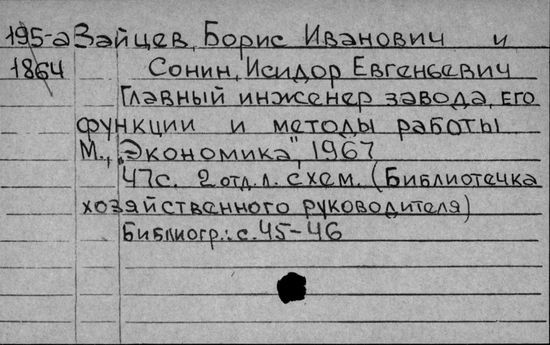 195-а Зайцев, Борис Иванович и
1864 Сонин, Исидор Евгеньевич
Главный инженер завода, его
функции и методы работы
М., „Экономика", 1967
47с. 2 отд. л. схем. (Библиотечка
хозяйственного руководителя)
Библиогр.: с. 45-46